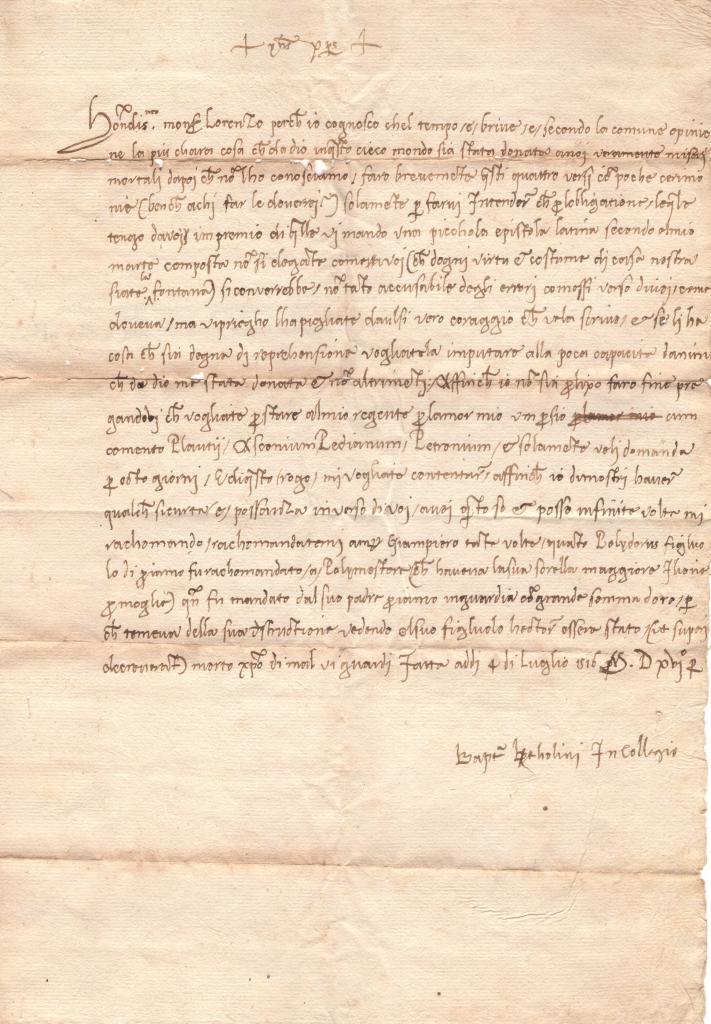 + yhs xps +
Honandis.mo mons Lorenzo perch io cognosco chel tempo /e/ brive /e/ secondo la comune opinio
ne la piu chara cosa ch da dio in qsto cieco mondo sia stata donata anoi veramente miseri
mortali dapoi ch no lho conosciamo / faro brevemete qsti quattro versi co poche cerimo
nie (bench achi far le doverrei) solamete p farvi Intender ch p lobligatione / lqle
tengo davoi in premio di qlle vi mando una picchola epistola latina secondo al mio
marte composta no si elegate come si voi (ch dogni virtu et costume di casa nostra
siate la fontana) si converrebbe / no tato accusabile degli errori comessi verso di voi / come
doveva / ma vi priegho lha pigliate da vulsi vero coraggio ch vela scrive / et se li ha
cosa ch sia degna di reprehensione vogliatela imputare alla poca capacita danimo
ch da dio me stata donata et no altrimeti. Affinch io no sia plipo faro fine pre
gandovi ch vogliate pstare al mio regente p lamor mio un psio plamor mio cum
comento Plautii / Asconium Pedianum / Petronium / et solamete veli domanda
p octo giorni / Et di qsto / rogo / mi vogliate contentar / affinch io dimostri haver
qualch sicurta et possanza in verso di voi / a voi qto so et posso infinite volte mi
rachomando / rachomandatemi anq Giampiero tate volte / quato Polydorus figliuo
lo di priamo fu rachomandato /a/ Polymestore (ch haveva la sua sorella maggiore Ilione
p moglie) qn fu mandato dal suo padre priamo in guardia co grande somma doro / p
ch temeva della sua dstructione vedendo el suo figliuolo hector essere stato (sic superi
decreverat) morto xpo di mal vi guardi fatta addi 4 di Luglio 1516 M. D xvi°
Bapt Betholini In Collegio